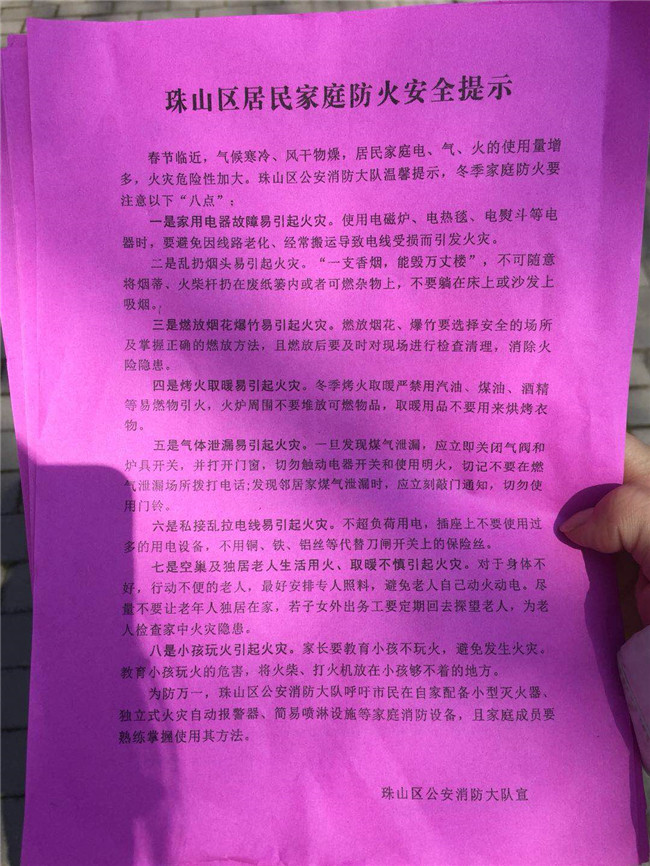 珠山区居民家庭防火安全提示
春节临近，气候寒冷、风干物燥，居民家庭电、气、火的使用量增
多，火灾危险性加大。珠山区公安消防大队温馨提示，冬季家庭防火要
注意以下“八点”：
一是家用电器故障易引起火灾。使用电磁炉、电热毯、电熨斗等电
器时，要避免因线路老化、经常搬运导致电线受损而引发火灾。
二是乱扔烟头易引起火灾。“一支香烟，能毁万丈楼”，不可随意
将烟蒂、火柴杆扔在废纸篓内或者可燃杂物上，不要躺在床上或沙发上
吸烟。
三是燃放烟花爆竹易引起火灾。燃放烟花、爆竹要选择安全的场所
及掌握正确的燃放方法，且燃放后要及时对现场进行检查清理，消除火
险隐患。
四是烤火取暖易引起火灾。冬季烤火取暖严禁用汽油、煤油、酒精
等易燃物引火，火炉周围不要堆放可燃物品，取暖用品不要用来烘烤衣
物。
五是气体泄漏易引起火灾。一旦发现煤气泄漏，应立即关闭气阀和
炉具开关，并打开门窗，切勿触动电器开关和使用明火，切记不要在燃
气泄漏场所拨打电话;发现邻居家煤气泄漏时，应立刻敲门通知，切勿使
用门铃。
六是私接乱拉电线易引起火灾。不超负荷用电，插座上不要使用过
多的用电设备，不用铜、铁、铝丝等代替刀闸开关上的保险丝。
七是空巢及独居老人生活用火、取暖不慎引起火灾。对于身体不
好，行动不便的老人，最好安排专人照料，避免老人自己动火动电。尽
量不要让老年人独居在家，若子女外出务工要定期回去探望老人，为老
人检查家中火灾隐患。
八是小孩玩火引起火灾。家长要教育小孩不玩火，避免发生火灾。
教育小孩玩火的危害，将火柴、打火机放在小孩够不着的地方。
为防万一，珠山区公安消防大队呼吁市民在自家配备小型灭火器、
独立式火灾自动报警器、简易喷淋设施等家庭消防设备，且家庭成员要
熟练掌握使用其方法。
珠山区公安消防大队宣